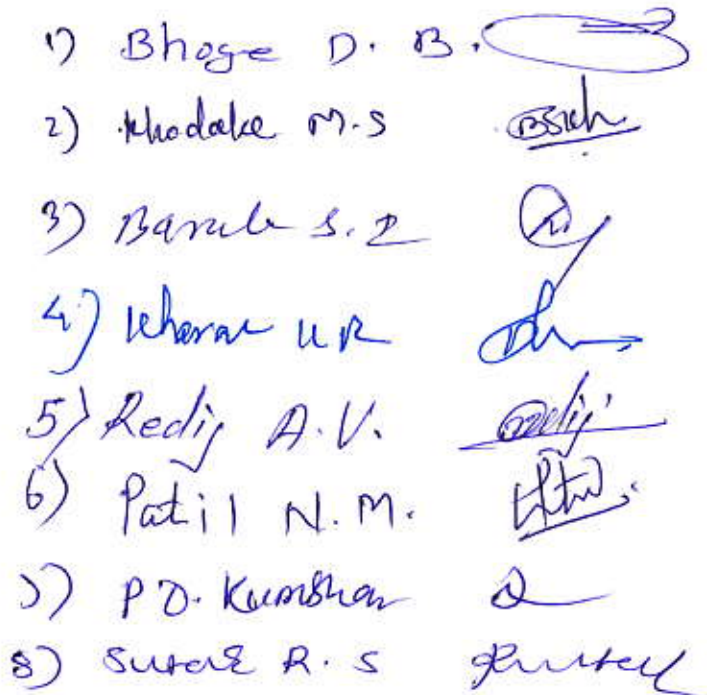 1) Bhoge D. B.
2) Khodake M.S
3) Barule S. I
4) Kharat U R
5) Redij A.V. Redij
6) Patil N.M.
7) P D. Kumbhar
8) Sutar R. S